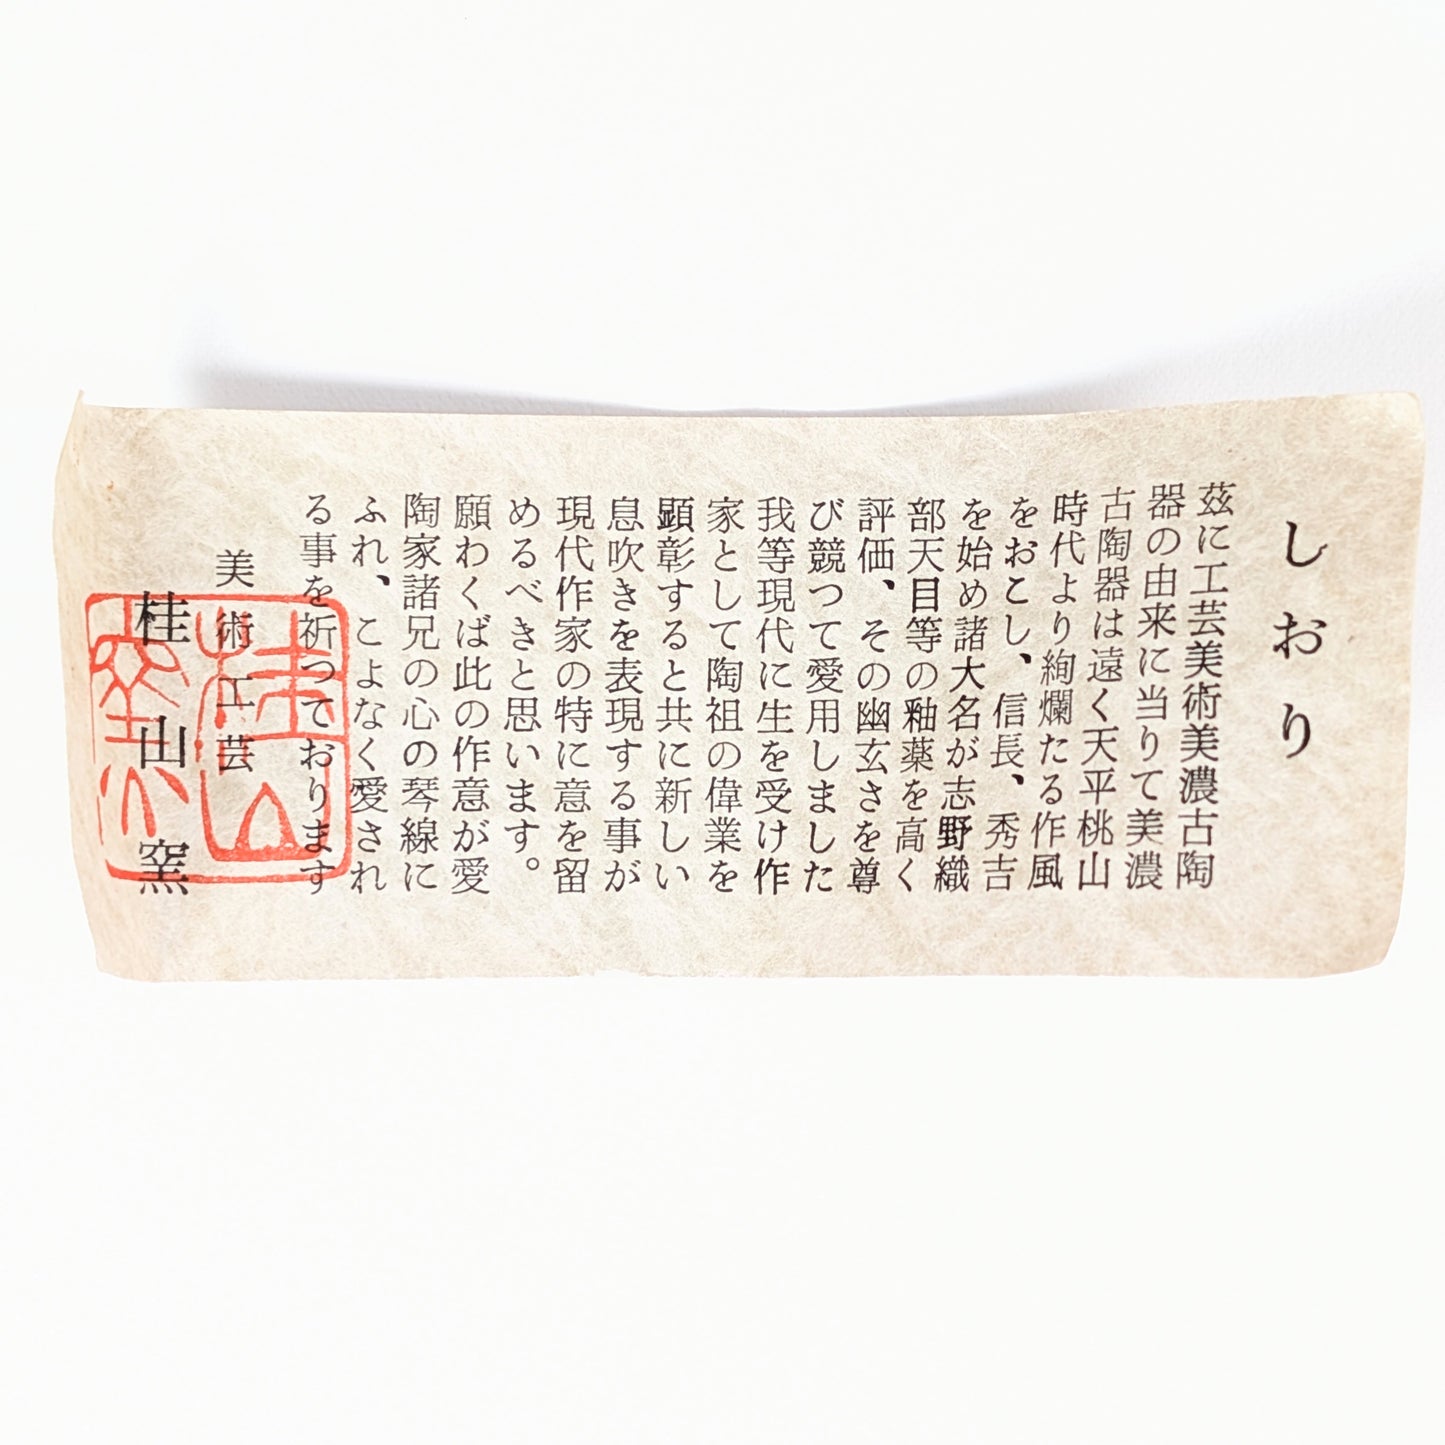 しおり
茲に工芸美術美濃古陶
器の由来に当りて美濃
古陶器は遠く天平桃山
時代より絢爛たる作風
をおこし、信長、秀吉
を始め諸大名が志野織
部天目等の釉薬を高く
評価、その幽玄さを尊
び競つて愛用しました
我等現代に生を受け作
家として陶祖の偉業を
顕彰すると共に新しい
息吹きを表現する事が
現代作家の特に意を留
めるべきと思います。
願わくば此の作意が愛
陶家諸兄の心の琴線に
ふれ、こよなく愛され
る事を祈つております
美術工芸
桂山窯
桂山
窯